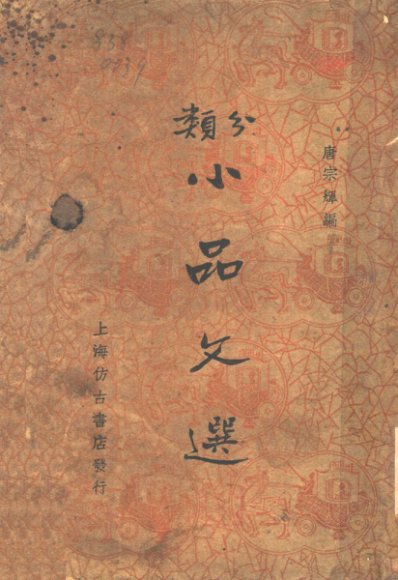 唐宗輝編
分類
小品文選
上海仿古書店發行